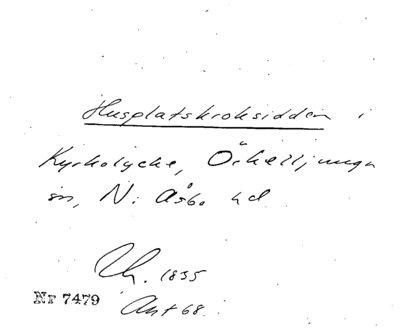 Husplatskroksidden i
Kyrkolycke, Örkelljunga
sn, N. Åsbo hd
1835
Nr 7479
Akt 68.